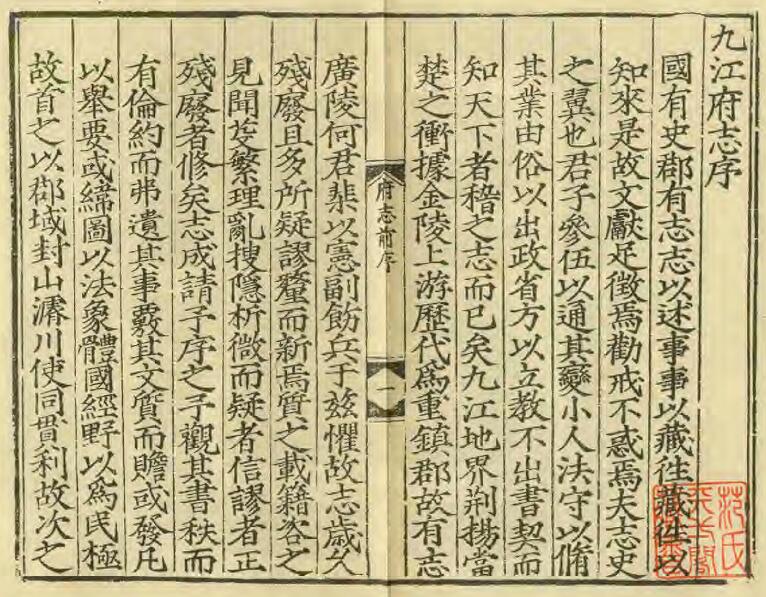 九江府志序
國有史郡有志志以述事事以藏徃藏徃以
知來是故文獻足徵焉勸戒不惑焉夫志史
之翼也君子參伍以通其變小人法守以脩
其業由俗以出政省方以立教不出書契而
知天下者稽之志而已矣九江地界荆揚當
楚之衝據金陵上游歷代爲重鎮郡故有志
府志前序
一
廣陵何君棐以憲副飭兵于兹懼故志歲久
殘廢且多所疑謬釐而新焉質之載籍咨之
見聞芟繁理亂搜隱析微而疑者信謬者正
殘廢者修矣志成請予序之予觀其書秩而
有倫約而弗遺其事覈其文質而贍或發凡
以舉要或緯圖以法象體國經野以爲民極
故首之以郡域封山濬川使同貫利故次之
范氏
天一閣